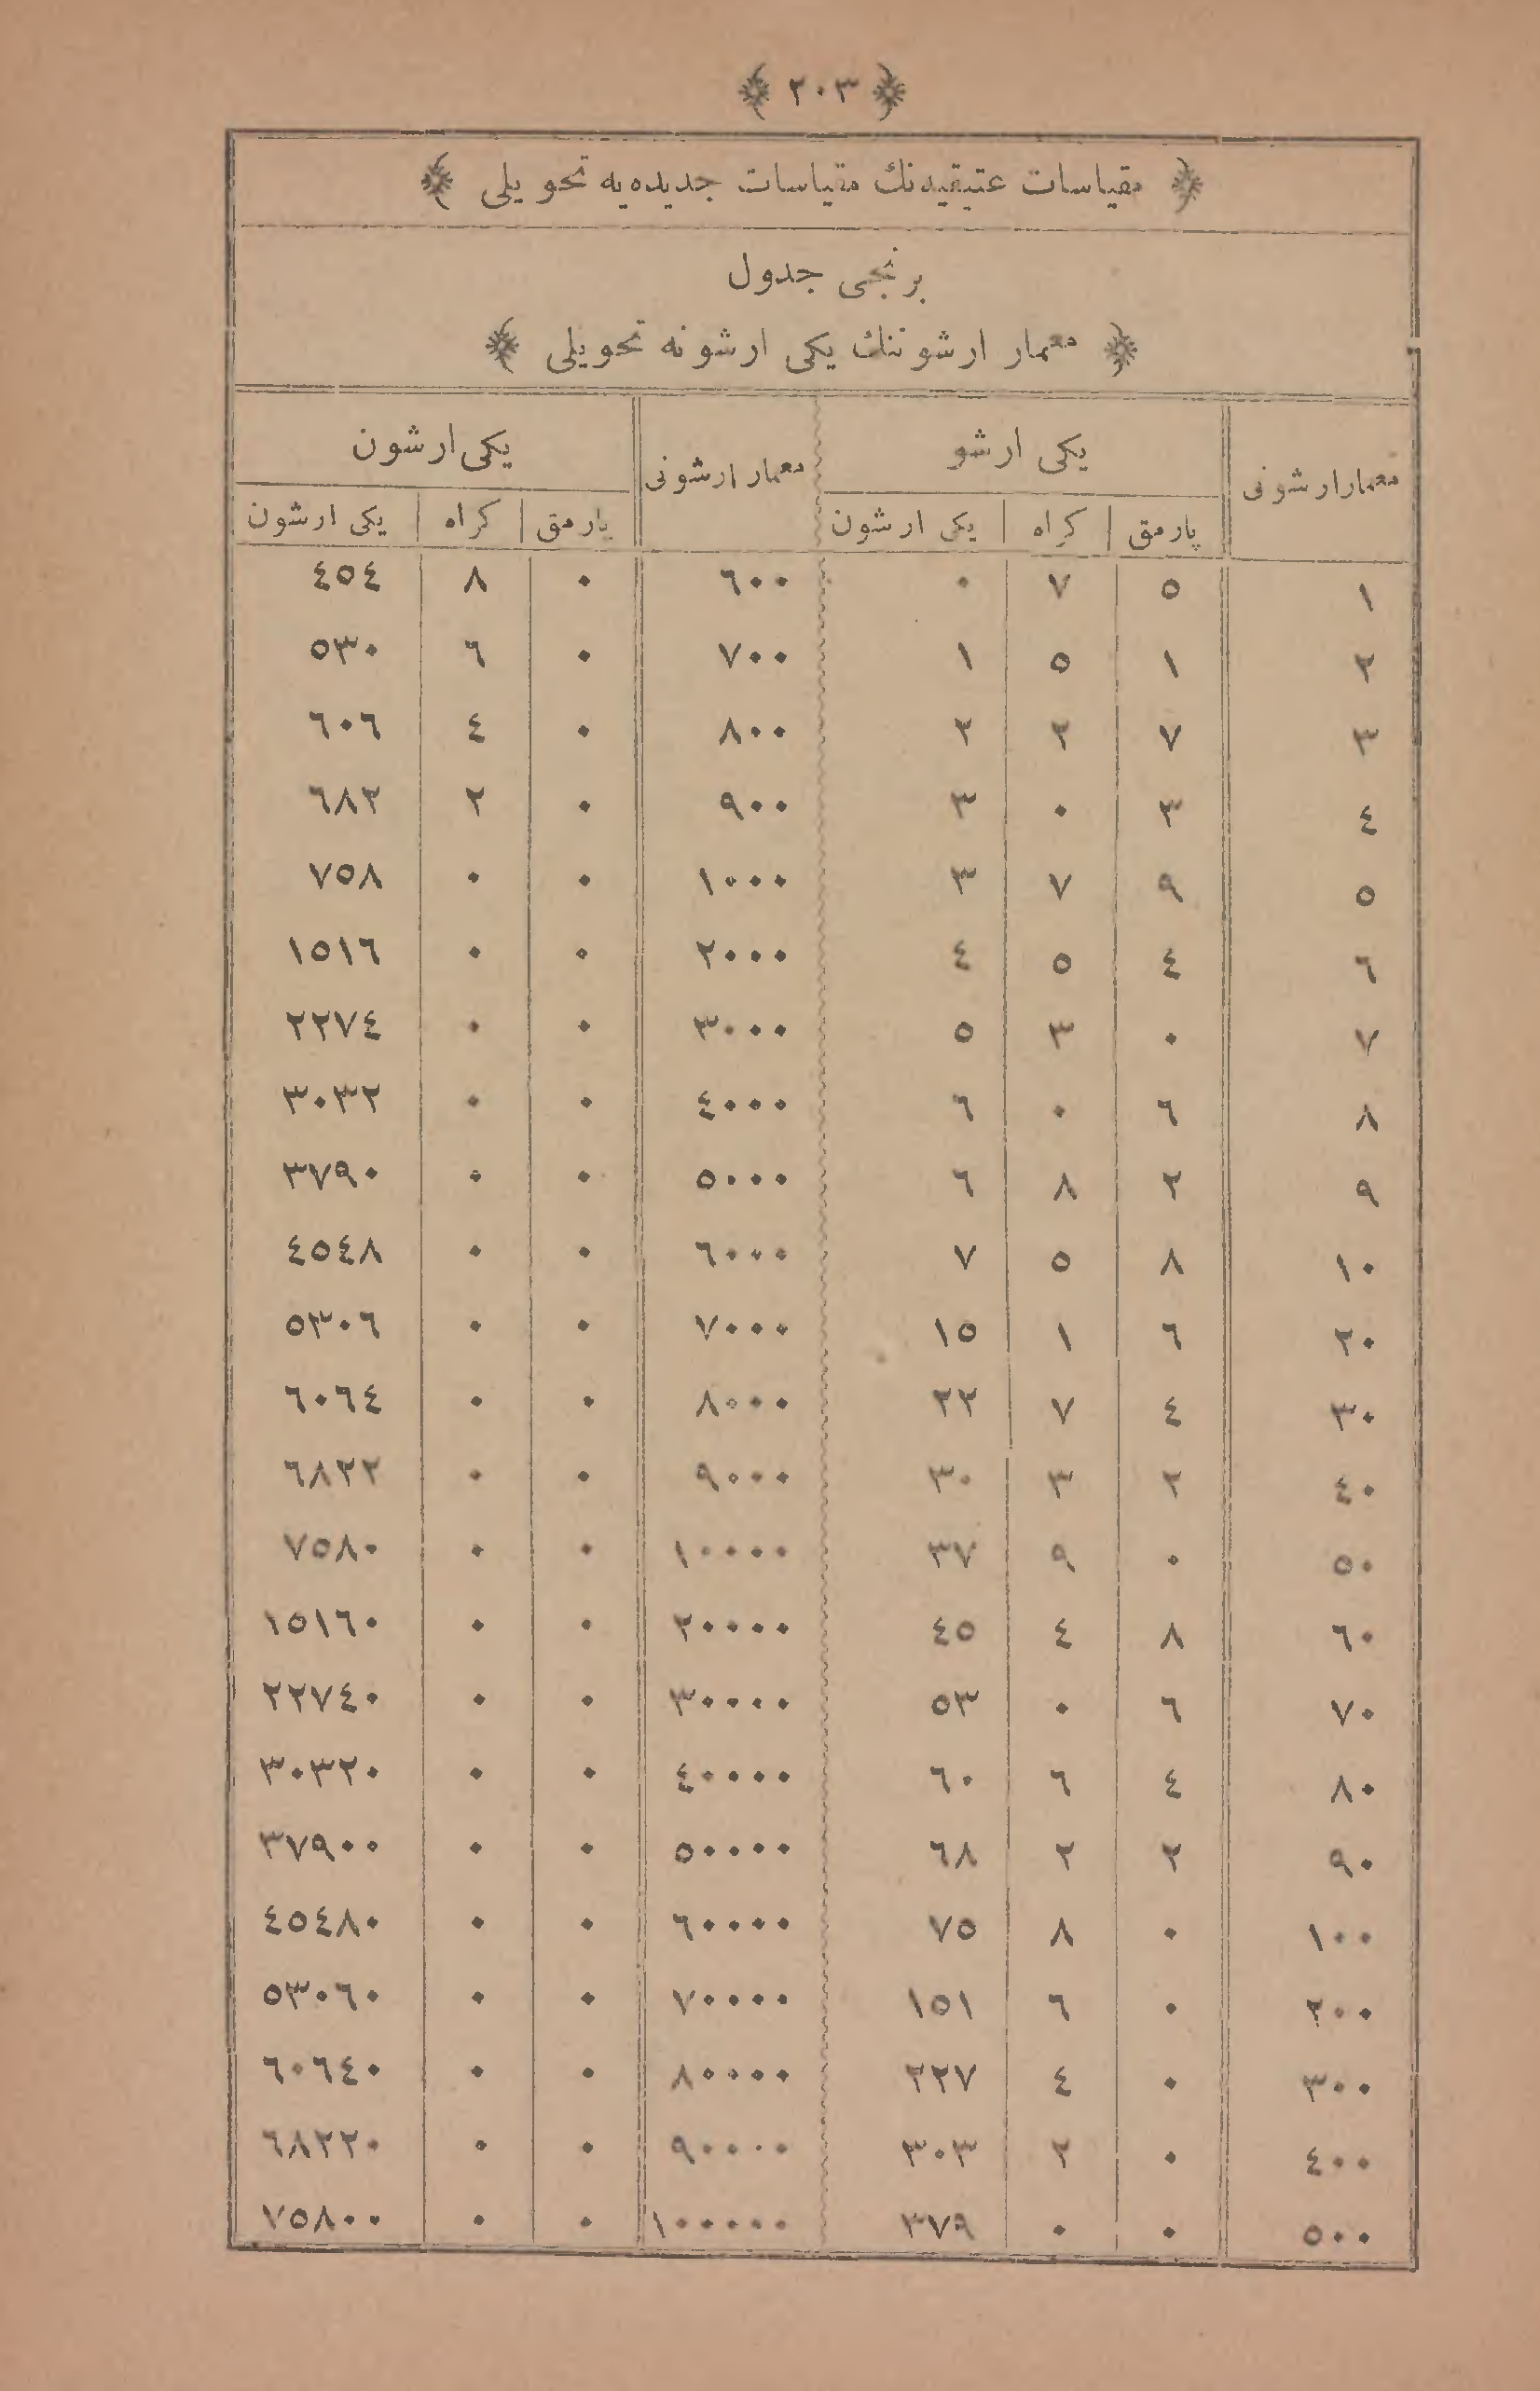 ٢٠٣
مقیاسات عتیقیه‌نك مقیاسات جدیده‌یه تحویلی
برنجی جدول
معمار ارشوننك یكی ارشونه تحویلی
معمار ارشونی | یكی ارشو | معمار ارشونی | یكی ارشون
پارمق | كراه | یكی ارشون | پارمق | كراه | یكی ارشون
١ | ٥ | ٧ | ٠ | ٦٠٠ | ٠ | ٨ | ٤٥٤
٢ | ١ | ٥ | ١ | ٧٠٠ | ٠ | ٦ | ٥٣٠
٣ | ٧ | ٢ | ٢ | ٨٠٠ | ٠ | ٤ | ٦٠٦
٤ | ٣ | ٠ | ٣ | ٩٠٠ | ٠ | ٢ | ٦٨٢
٥ | ٩ | ٧ | ٣ | ١٠٠٠ | ٠ | ٠ | ٧٥٨
٦ | ٤ | ٥ | ٤ | ٢٠٠٠ | ٠ | ٠ | ١٥١٦
٧ | ٠ | ٣ | ٥ | ٣٠٠٠ | ٠ | ٠ | ٢٢٧٤
٨ | ٦ | ٠ | ٦ | ٤٠٠٠ | ٠ | ٠ | ٣٠٣٢
٩ | ٢ | ٨ | ٦ | ٥٠٠٠ | ٠ | ٠ | ٣٧٩٠
١٠ | ٨ | ٥ | ٧ | ٦٠٠٠ | ٠ | ٠ | ٤٥٤٨
٢٠ | ٦ | ١ | ١٥ | ٧٠٠٠ | ٠ | ٠ | ٥٣٠٦
٣٠ | ٤ | ٧ | ٢٢ | ٨٠٠٠ | ٠ | ٠ | ٦٠٦٤
٤٠ | ٢ | ٣ | ٣٠ | ٩٠٠٠ | ٠ | ٠ | ٦٨٢٢
٥٠ | ٠ | ٩ | ٣٧ | ١٠٠٠٠ | ٠ | ٠ | ٧٥٨٠
٦٠ | ٨ | ٤ | ٤٥ | ٢٠٠٠٠ | ٠ | ٠ | ١٥١٦٠
٧٠ | ٦ | ٠ | ٥٣ | ٣٠٠٠٠ | ٠ | ٠ | ٢٢٧٤٠
٨٠ | ٤ | ٦ | ٦٠ | ٤٠٠٠٠ | ٠ | ٠ | ٣٠٣٢٠
٩٠ | ٢ | ٢ | ٦٨ | ٥٠٠٠٠ | ٠ | ٠ | ٣٧٩٠٠
١٠٠ | ٠ | ٨ | ٧٥ | ٦٠٠٠٠ | ٠ | ٠ | ٤٥٤٨٠
٢٠٠ | ٠ | ٦ | ١٥١ | ٧٠٠٠٠ | ٠ | ٠ | ٥٣٠٦٠
٣٠٠ | ٠ | ٤ | ٢٢٧ | ٨٠٠٠٠ | ٠ | ٠ | ٦٠٦٤٠
٤٠٠ | ٠ | ٢ | ٣٠٣ | ٩٠٠٠٠ | ٠ | ٠ | ٦٨٢٢٠
٥٠٠ | ٠ | ٠ | ٣٧٩ | ١٠٠٠٠٠ | ٠ | ٠ | ٧٥٨٠٠